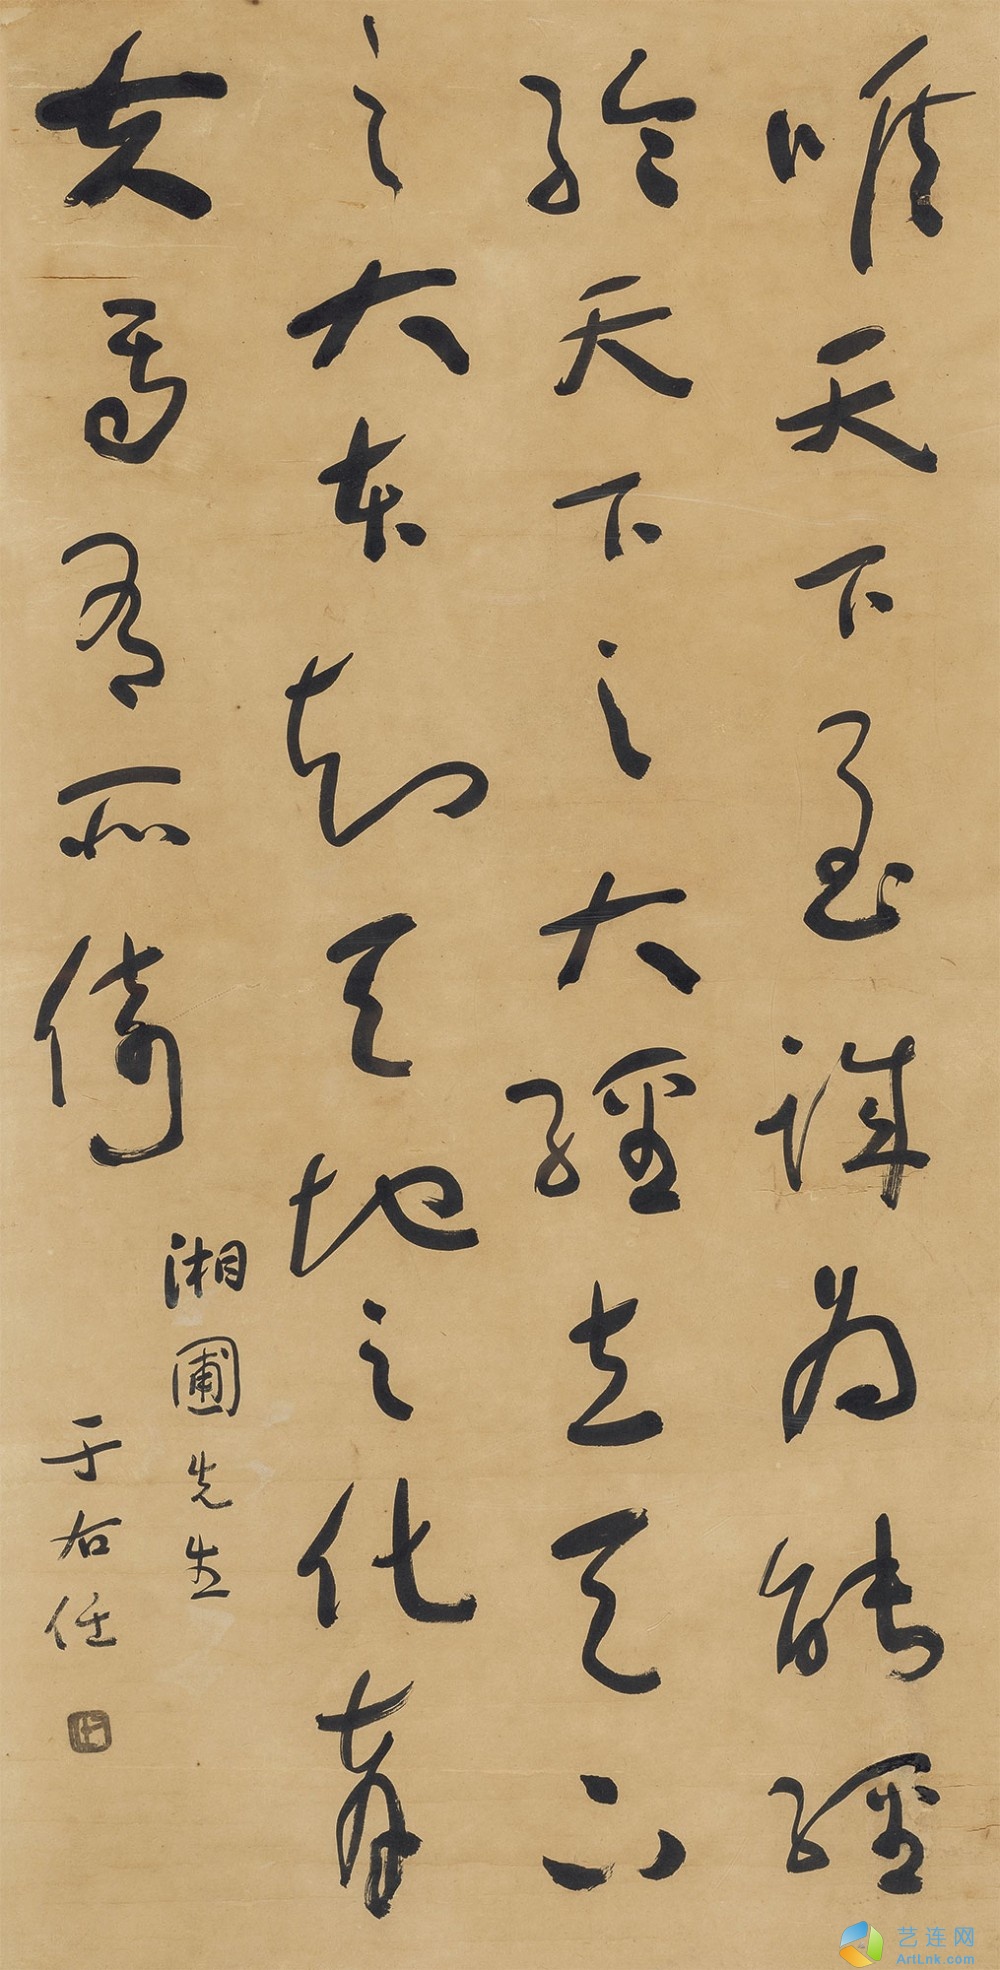 唯天下至誠為能經
綸天下之大經立天下
之大本知天地之化育
夫焉有所倚
湘圃先生
于右任
艺连网
ArtLnk.com